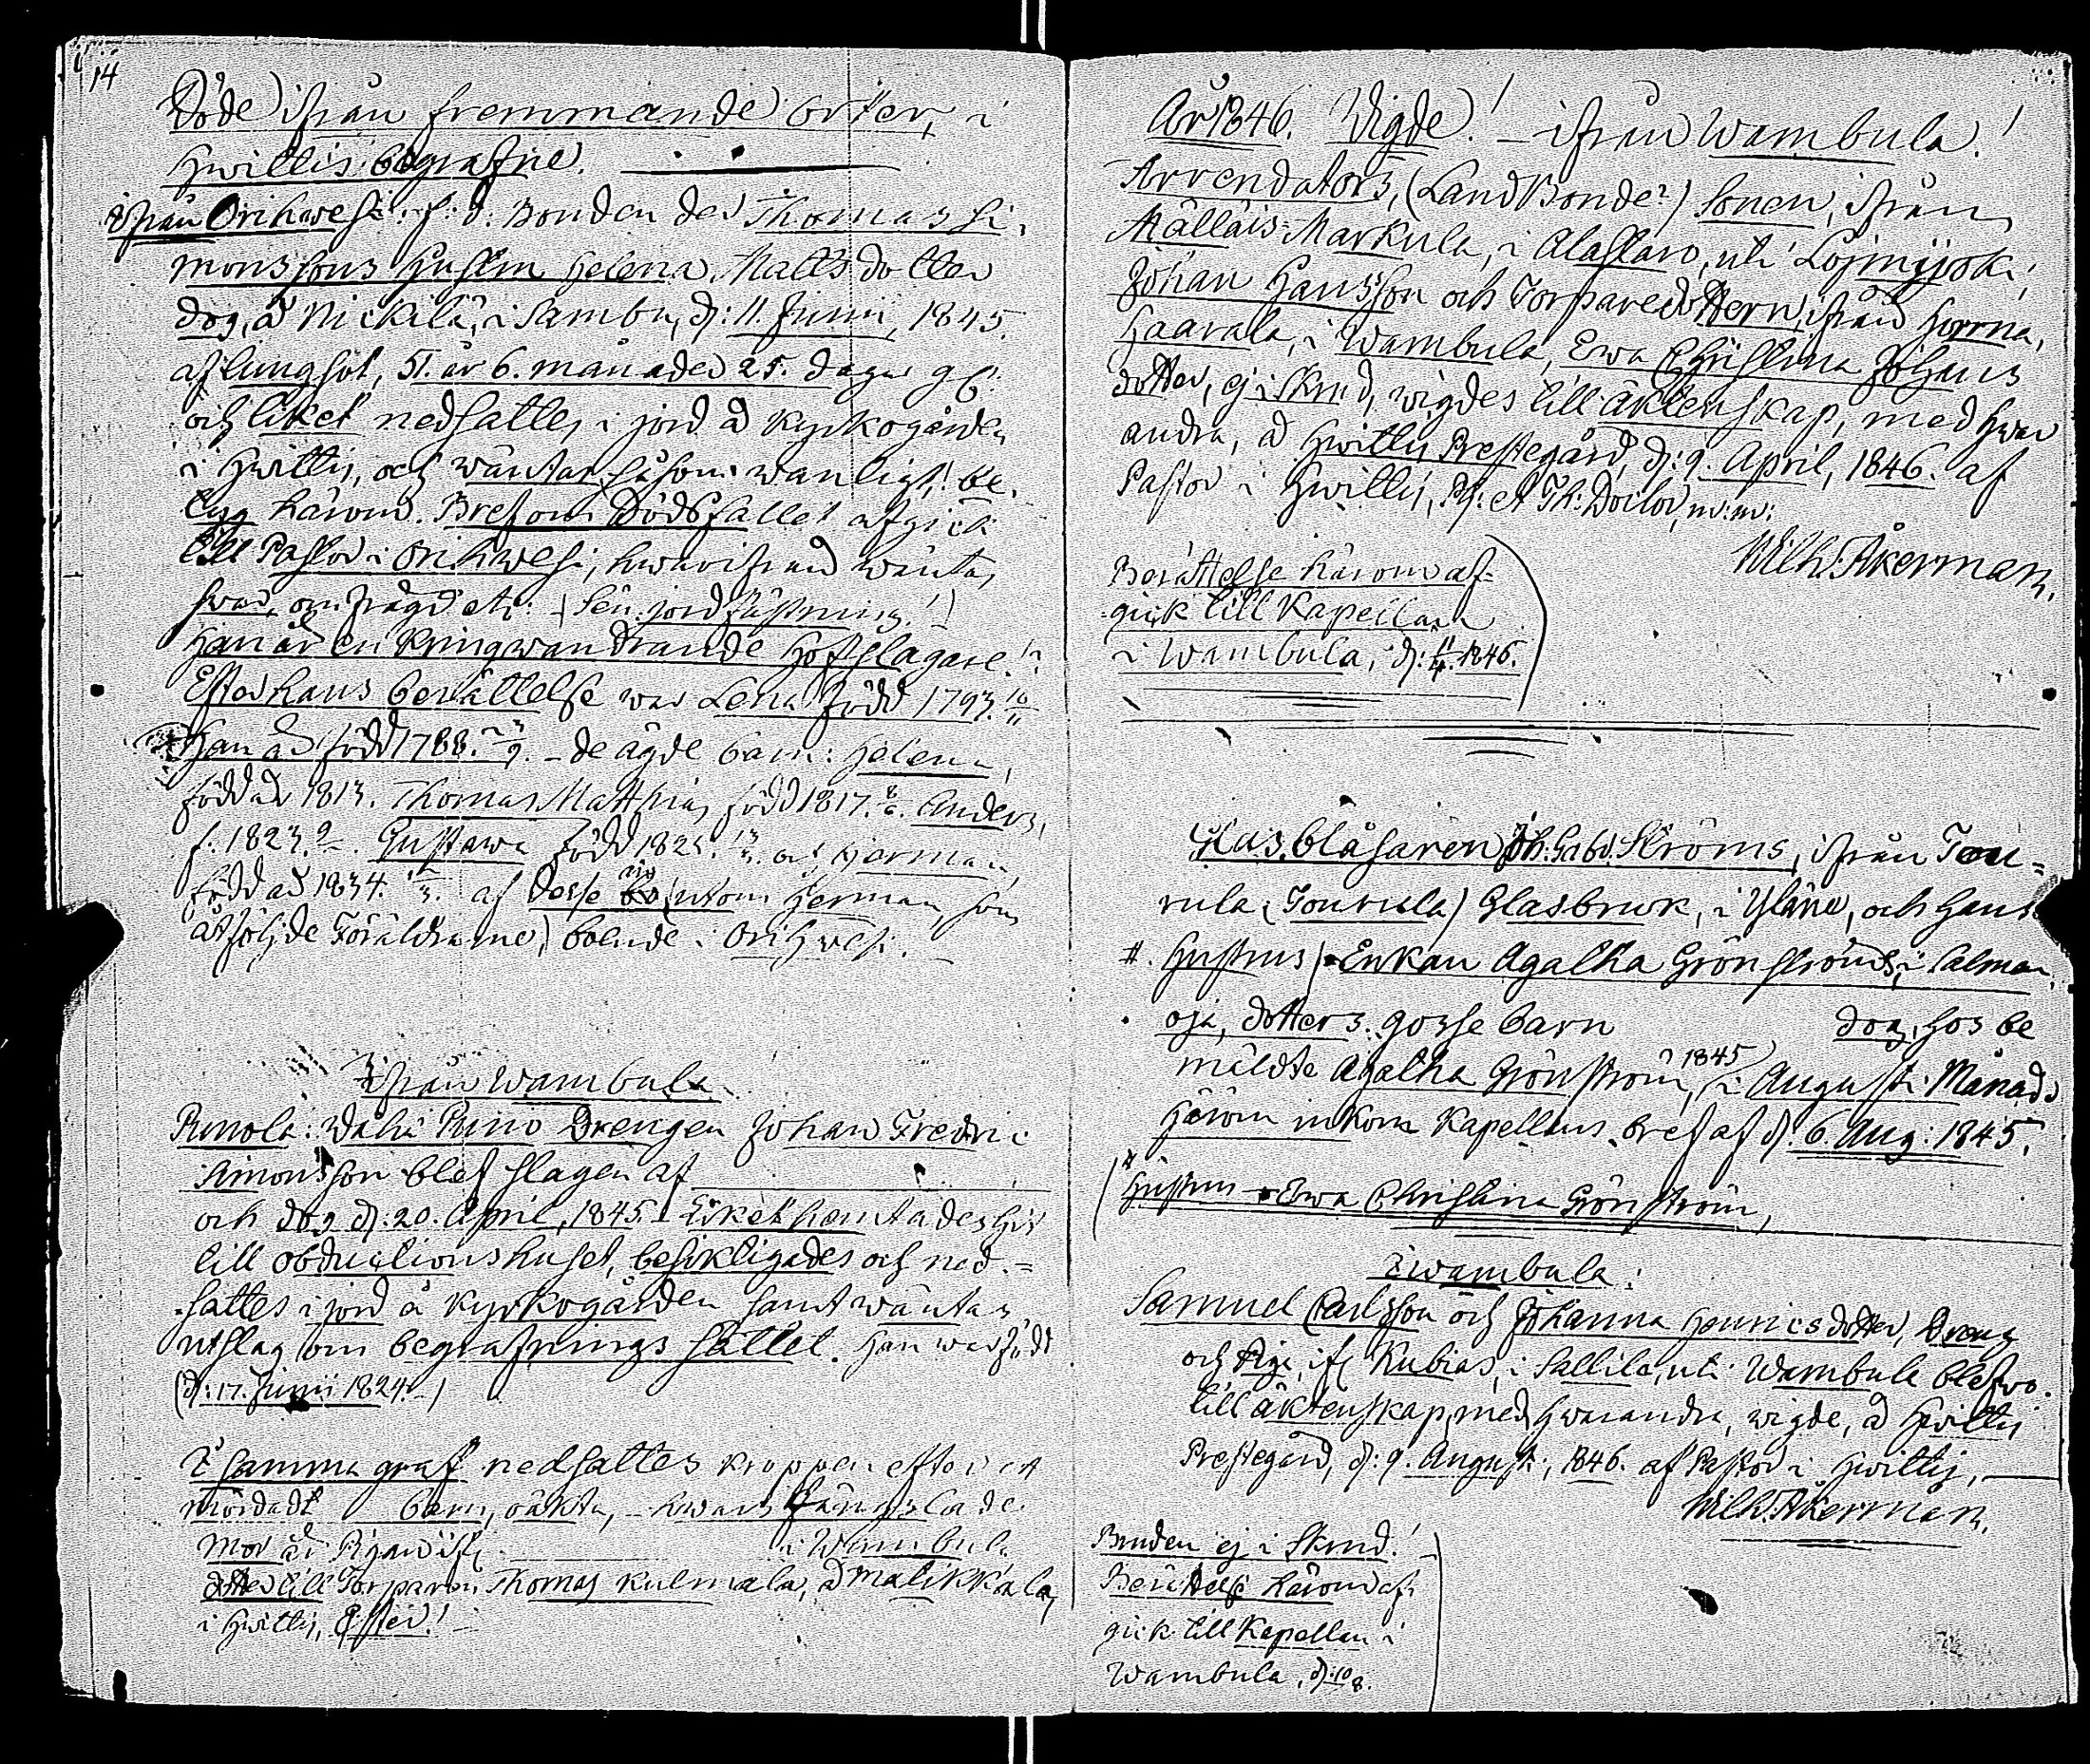 14
Döde ifrån fremmande orter, i
Hwittis begrafne.
Ifrån Orihwesi: f: d. Bonden der Thomas Si-
monssons Hustru Helena Mattsdotter
dog, å Nickilä, i Sambu, d: 11 Junii, 1845.
af lungsot, 51. år 6. månader 25. dagar gl:
och liket nedsattes i jord å Kyrkogården
i Hwittis, och wäntar såsom wanligt be-
tyg härom. Bref om Dödsfallet afgick
till Pastor i Orihwesi, hwarifrån wäntas
swar, om frägd etc: (Sen jordfästning!)
Han är en kringwandrande Hofslagare!
Efter hans berättelse war Lena född 1793.
Han är född 1788. – de ägde barn: Helena,
född år 1813. Thomas Matthias född 1817. Anders,
f. 1823. Gustawa född 182 och Herman,
född år 1834. af desse utom Herman, som
åtföljde Föräldrarne) boende i Orihwesi.
Ifrån Wambula
Punola: Wähä Puno Drengen Johan Fredric
Simonsson blef slagen af
och dog d: 20. April, 1845. Liket hemtades hit
till obductionshuset, besiktigades och ned-
sattes i jord å Kyrkogården samt wäntas
utslag om begrafnings sättet. Han war född
(d: 17. Junii 1824.–)
I samma graf nedsattes kroppen efter ett
mördadt barn, oäkta, – hwars fängslade
Mor är Pigan ifr i Wambula
dotter till Torparen Thomas Kulmala, å Matikkala,
i Hwittis, Ester!
År 1846. Wigde! – ifrån Wambula!
Arrendators, (LandBonde?) Sonen, ifrån
Mälläis-Markula, i Alastaro, uti Loimijoki;
Johan Hansson och Torparedottern, ifrån Horna,
Haarala, i Wambula, Ewa Christina Johans
dotter, ej i Skrud, wigdes till äktenskap, med hwar
andra, å Hwittis Prestegård, d: 9. April, 1846. af
Pastor i Hwittis, Ph: et Th: Doctor, m: m:
Wilh: Åkerman.
Berättelse härom af-
gick till Kapellan
i Wambula, d: 11/4 1846.
Glasblåsaren Joh. Gabr. Ströms, ifrån Tou-
rula (Tourula) Glasbruk, i Yläne, och hans
#. Hustrus) Enkan Agatha Grönströms, i Salmen
oja, dotters gosse barn dog, hos be
mäldte Agatha Grönström, 1845 i Augusti Månad
Härom inkom Kapellans bref af d. 6. Aug: 1845.
(# Hustrun – Ewa Christina Grönström,
I Wambula:
Samuel Carlsson och Johanna Henricsdotter, Dreng
och Piga, ifr Kubias, i Sallila, uti Wambula blefwo
till äktenskap, med hwarandra, wigde, å Hwittis
Prestegård, d: 9. Augusti, 1846. af Pastor i Hwittis,
Wilh: Åkerman.
Bruden ej i Skrud!
Berättelse härom af-
gick till Kapellan i
Wambula, d: 10/8.